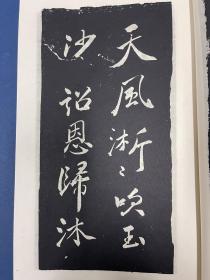 天風淅〻吹玉
沙詔恩歸沐